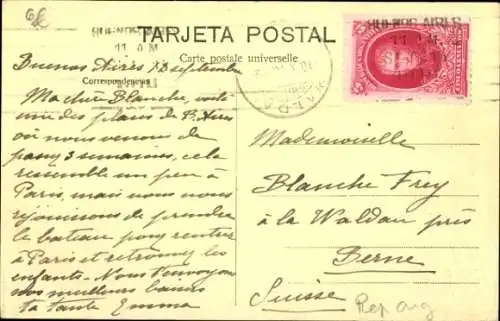 TARJETA POSTAL
Carte postale universelle
Correspondencia
BUENOS AIRES
11 A.M
BUENOS AIRES
11 A.M.
Buenos Aires 12 septembre
Ma chère Blanche, voilà
une des places de B. Aires
où nous venons de
passer 3 semaines, cela
ressemble un peu à
Paris, mais nous nous
rejouissons de prendre
le bateau pour rentrer
à Paris et retrouver les
enfants. Nous t'envoyons
nos meilleurs baisers
ta tante Emma
Mademoiselle
Blanche Frey
à la Waldau près
Berne
Suisse
Rep arg